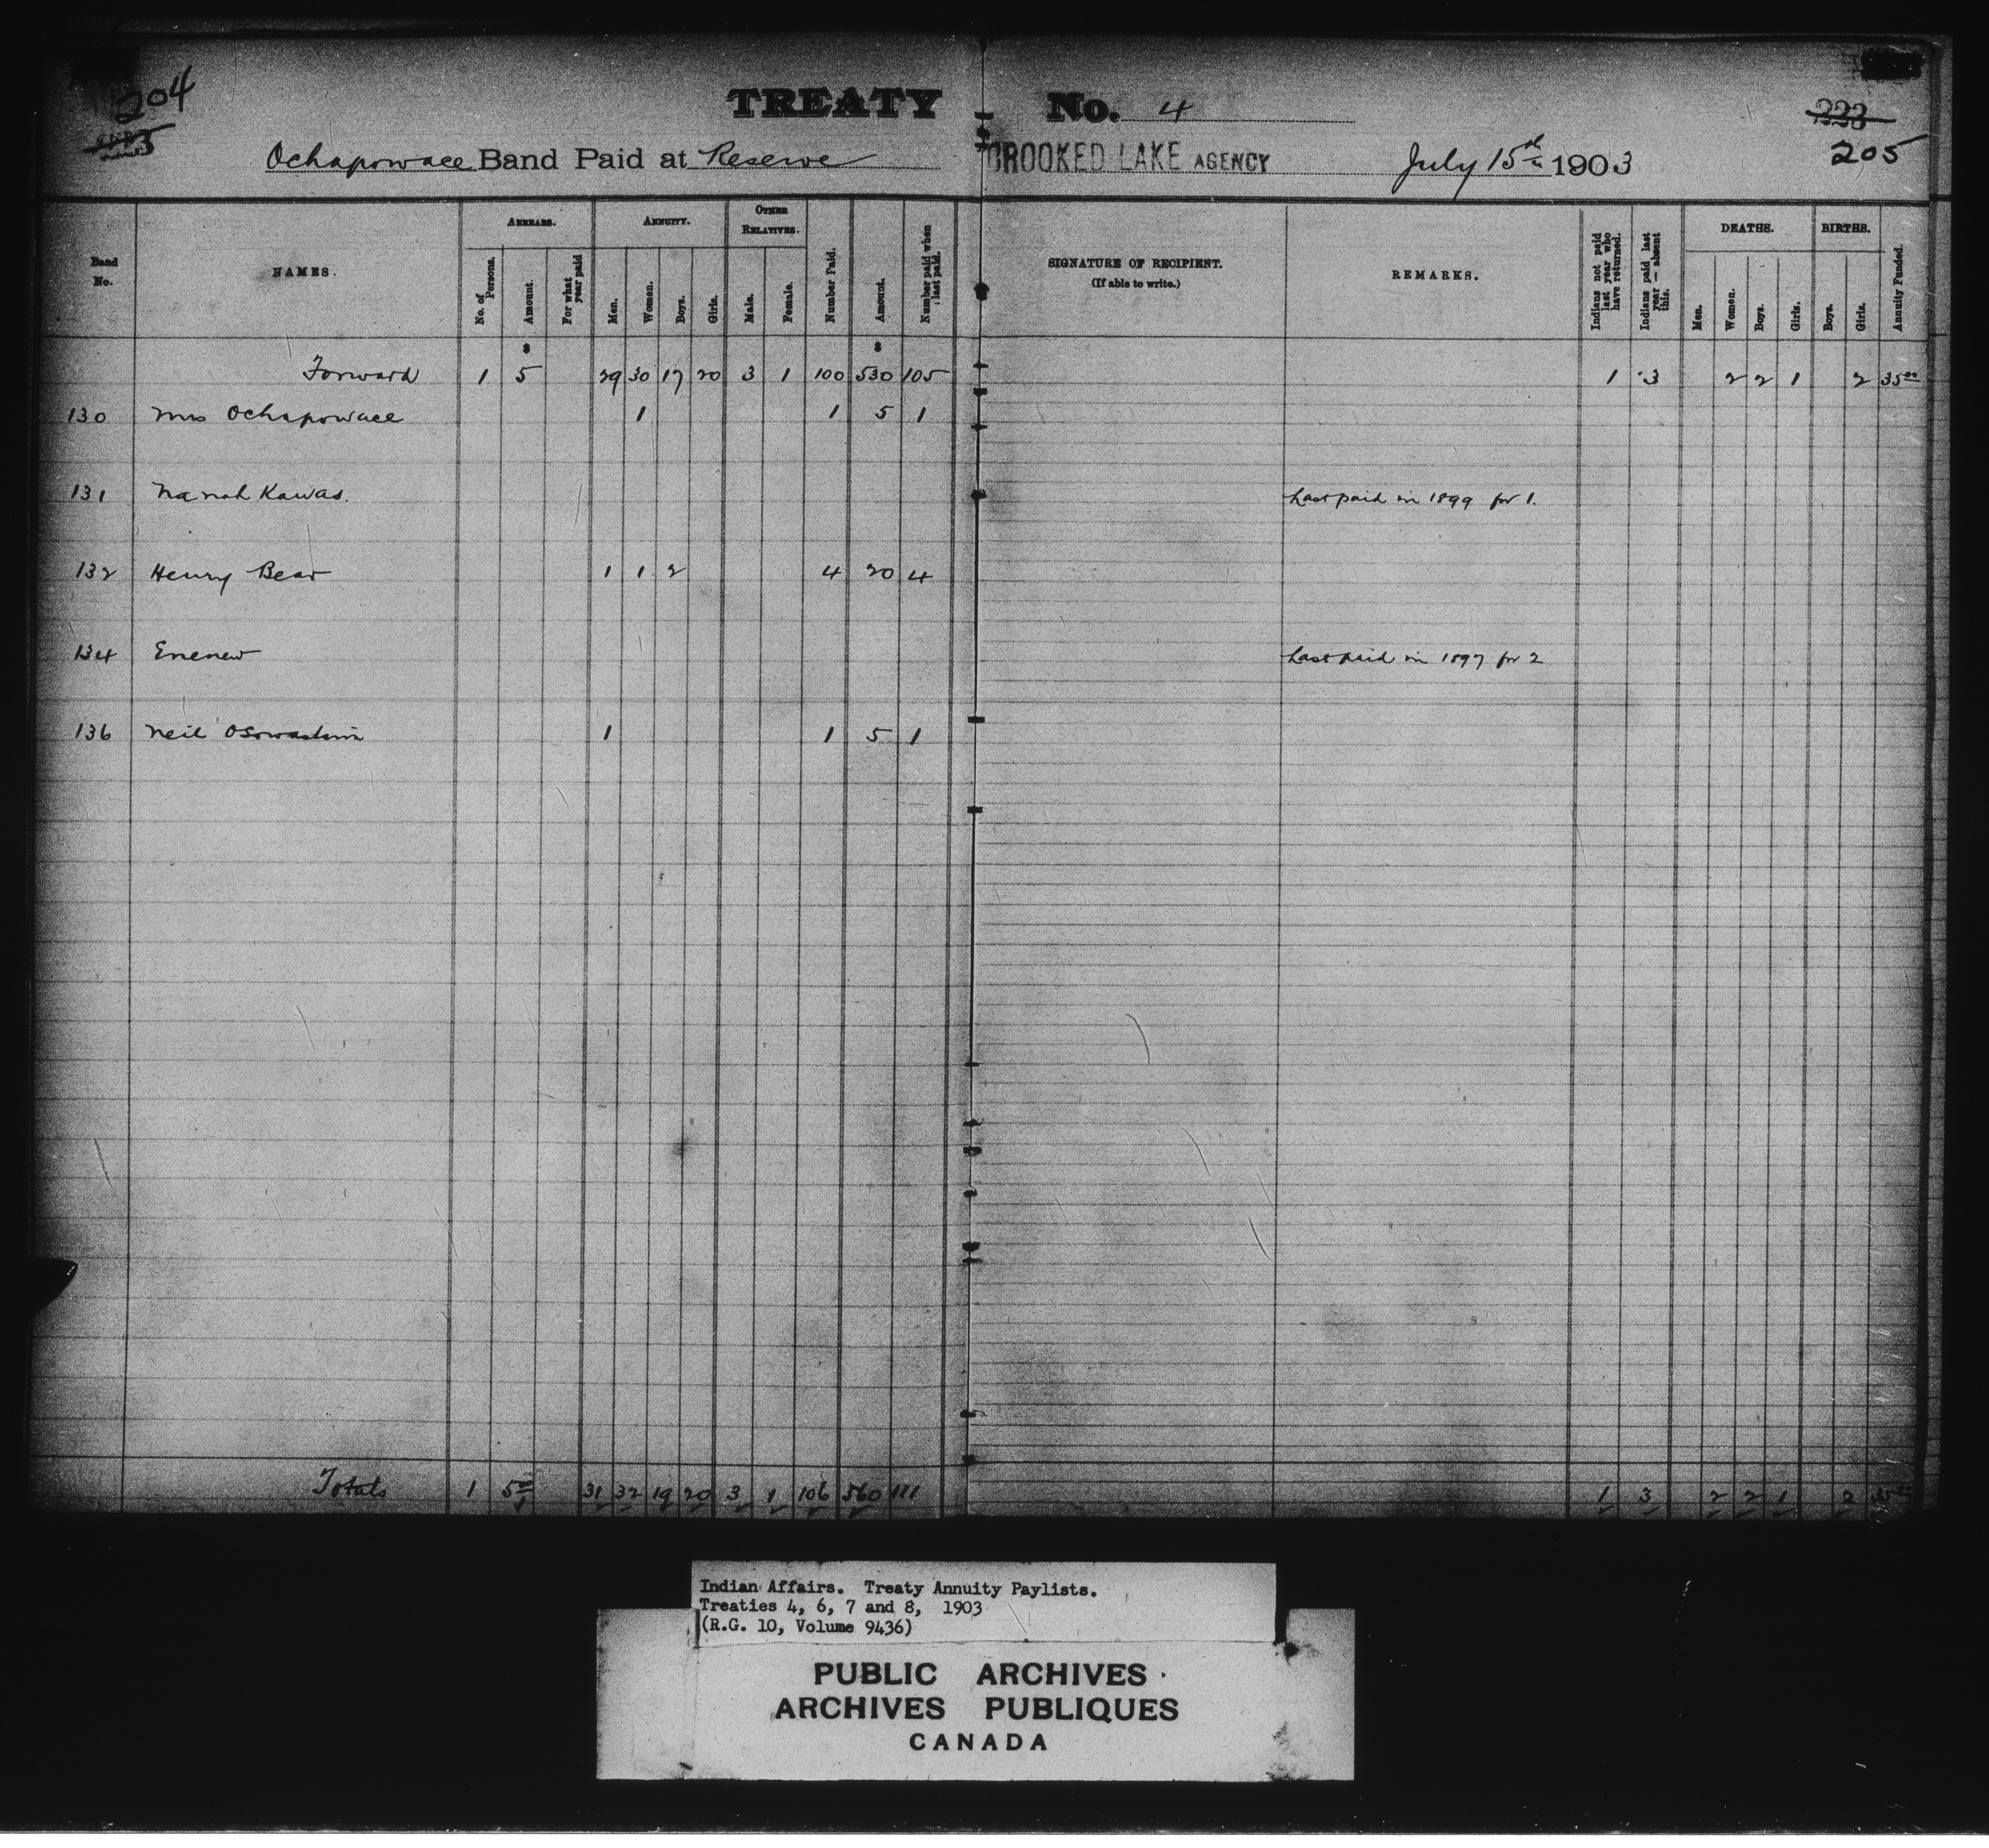 204
TREATY No. 4
223
205
Ochapowace Band Paid at Reserve CROOKED LAKE AGENCY July 15th 1903
Band No.
NAMES.
ARREARS.
No. of Persons.
Amount.
For what year paid
ANNUITY.
Men.
Women.
Boys.
Girls.
OTHER RELATIVES.
Male.
Female.
Number Paid.
Amount.
Number paid when last paid.
SIGNATURE OF RECIPIENT.
(If able to write.)
REMARKS.
Indians not paid last year who have returned.
Indians paid last year — absent this.
DEATHS.
Men.
Women.
Boys.
Girls.
BIRTHS.
Boys.
Girls.
Annuity Funded.
Forward 1 5 29 30 17 20 3 1 100 530 105 1 3 2 2 1 2 35 00
130 Mrs Ochapowace 1 1 5 1
131 Nanah Kawas. Last paid in 1899 for 1.
132 Henry Bear 1 1 2 4 20 4
134 Enenew Last paid in 1897 for 2
136 Neil Osowastim 1 1 5 1
Totals 1 5 00 31 32 19 20 3 1 106 560 111 1 3 2 2 1 2 35
Indian Affairs. Treaty Annuity Paylists.
Treaties 4, 6, 7 and 8, 1903
(R.G. 10, Volume 9436)
PUBLIC ARCHIVES
ARCHIVES PUBLIQUES
CANADA